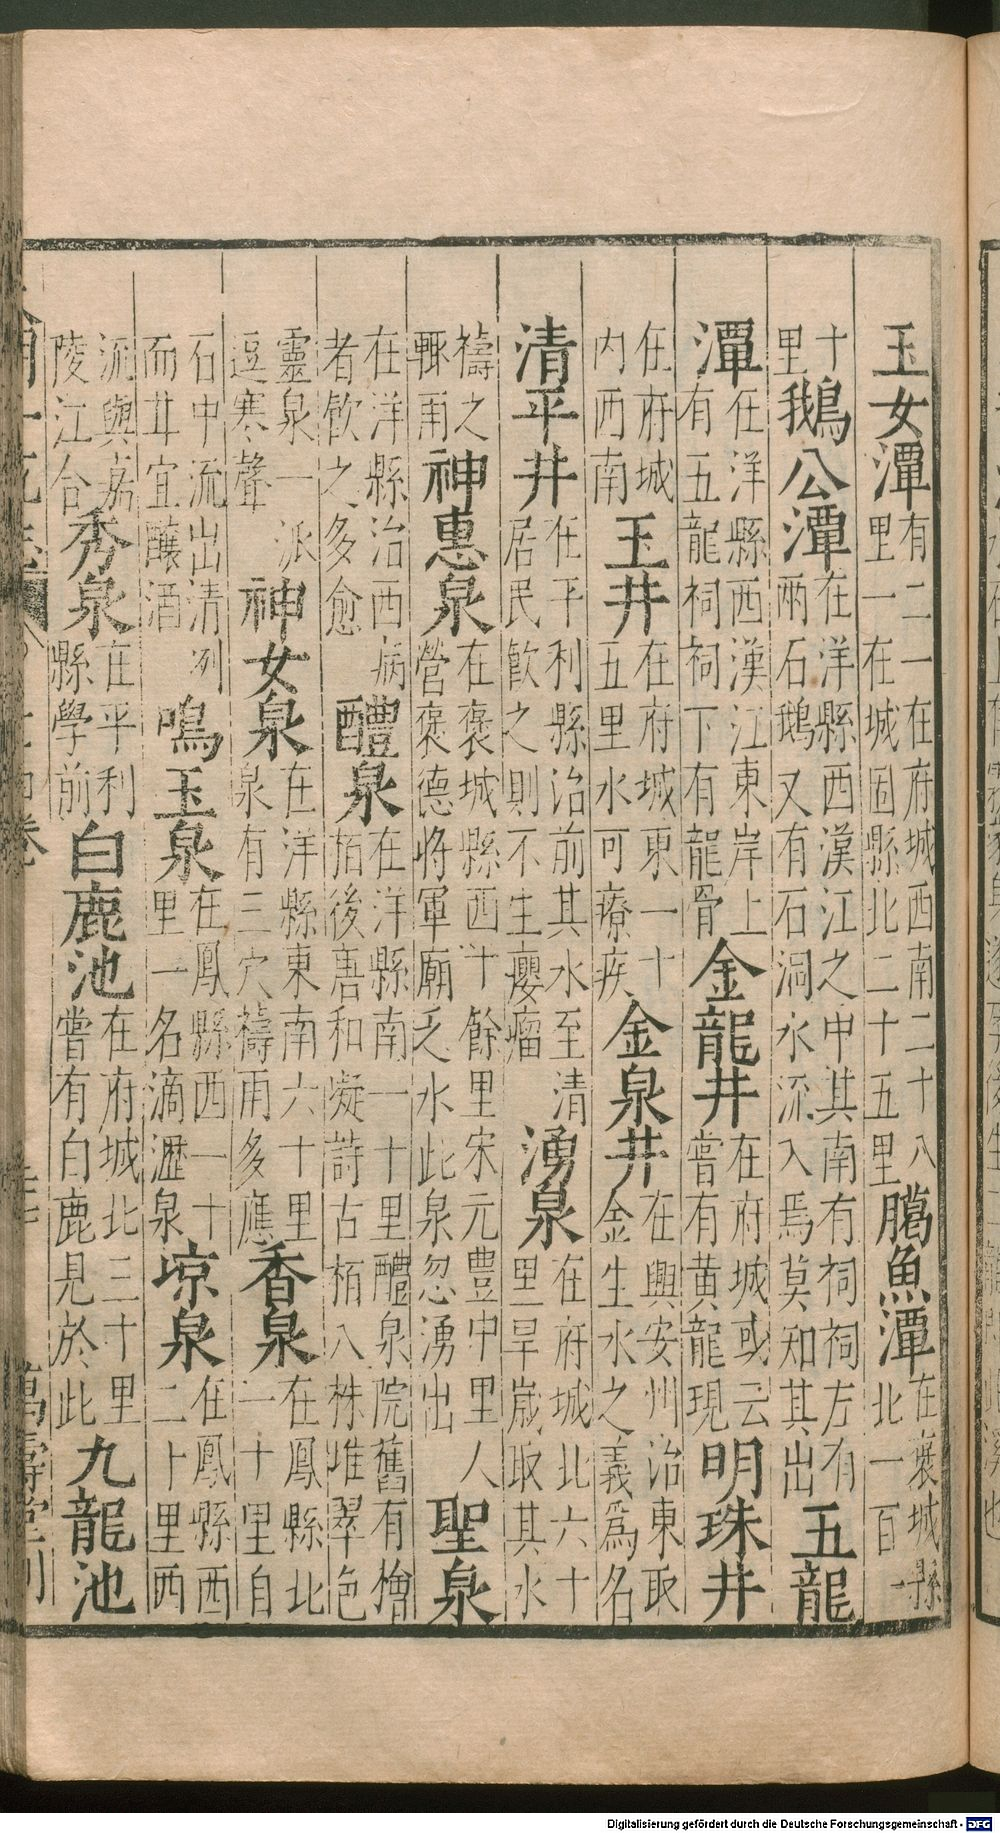 玉女潭有二一在府城西南二十八里一在城固縣北二十五里臈魚潭在褒城縣北一百一
十里鵝公潭在洋縣西漢江之中其南有祠祠左有兩石鵝又有石洞水流入焉莫知其出五龍
潭在洋縣西漢江東岸上有五龍祠祠下有龍骨金龍井在府城或云嘗有黃龍現明珠井
在府城内西南玉井在府城東一十五里水可療疾金泉井在興安州治東取金生水之義爲名
清平井在平利縣治前其水至清居民飲之則不生癭瘤湧泉在府城北六十里旱嵗取其水
禱之輒雨神惠泉在褒城縣西十餘里宋元豊中里人營褒德將軍廟乏水此泉忽湧出聖泉
在洋縣治西病者飲之多愈醴泉在洋縣南一十里醴泉院舊有檜栢後唐和凝詩古栢八株堆翠色
靈泉一派逗寒聲神女泉在洋縣東南六十里泉有三穴禱雨多應香泉在鳳縣北一十里自
石中流出清冽而甘宜釀酒鳴玉泉在鳳縣西一十里一名滴瀝泉凉泉在鳳縣西二十里西
流與嘉陵江合秀泉在平利縣學前白鹿池在府城北三十里嘗有白鹿見於此九龍池
萬壽堂刊
Digitalisierung gefördert durch die Deutsche Forschungsgemeinschaft - DFG